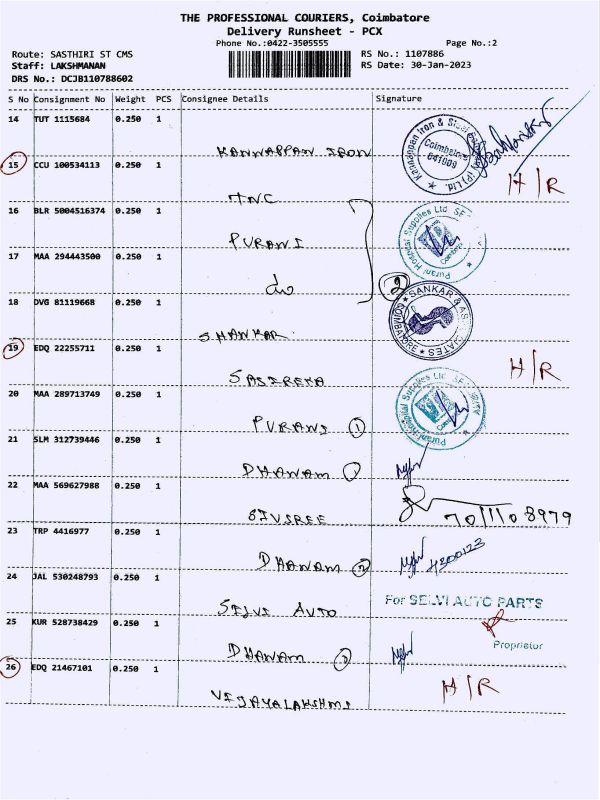 THE PROFESSIONAL COURIERS, Coimbatore
Delivery Runsheet - PCX
Phone No.:0422-3505555 Page No.:2
Route: SASTHIRI ST CMS RS No.: 1107886
Staff: LAKSHMANAN RS Date: 30-Jan-2023
DRS No.: DCJB110788602
S No Consignment No Weight PCS Consignee Details Signature
14 TUT 1115684 0.250 1
KANNAPPAN IRON
Kannappan Iron & Steel (P) Ltd.
Coimbatore
641009
15 CCU 100534113 0.250 1
TNC
H/R
16 BLR 5004516374 0.250 1
PURANI
Purani Hospital Supplies Ltd
17 MAA 294443500 0.250 1
do
2
18 DVG 81119668 0.250 1
SHANKAR
SANKAR & ASSOCIATES
COIMBATORE
19 EDQ 22255711 0.250 1
SASIREKA
H/R
20 MAA 289713749 0.250 1
PURANI 1
Purani Hospital Supplies Ltd
21 SLM 312739446 0.250 1
DHANAM 1
22 MAA 569627988 0.250 1
SIVSREE
23 TRP 4416977 0.250 1
DHANAM 2
24 JAL 530248793 0.250 1
SELVI AUTO
For SELVI AUTO PARTS
25 KUR 528738429 0.250 1
Proprietor
DHANAM
26 EDQ 21467101 0.250 1
VIJAYALAKSHMI
H/R